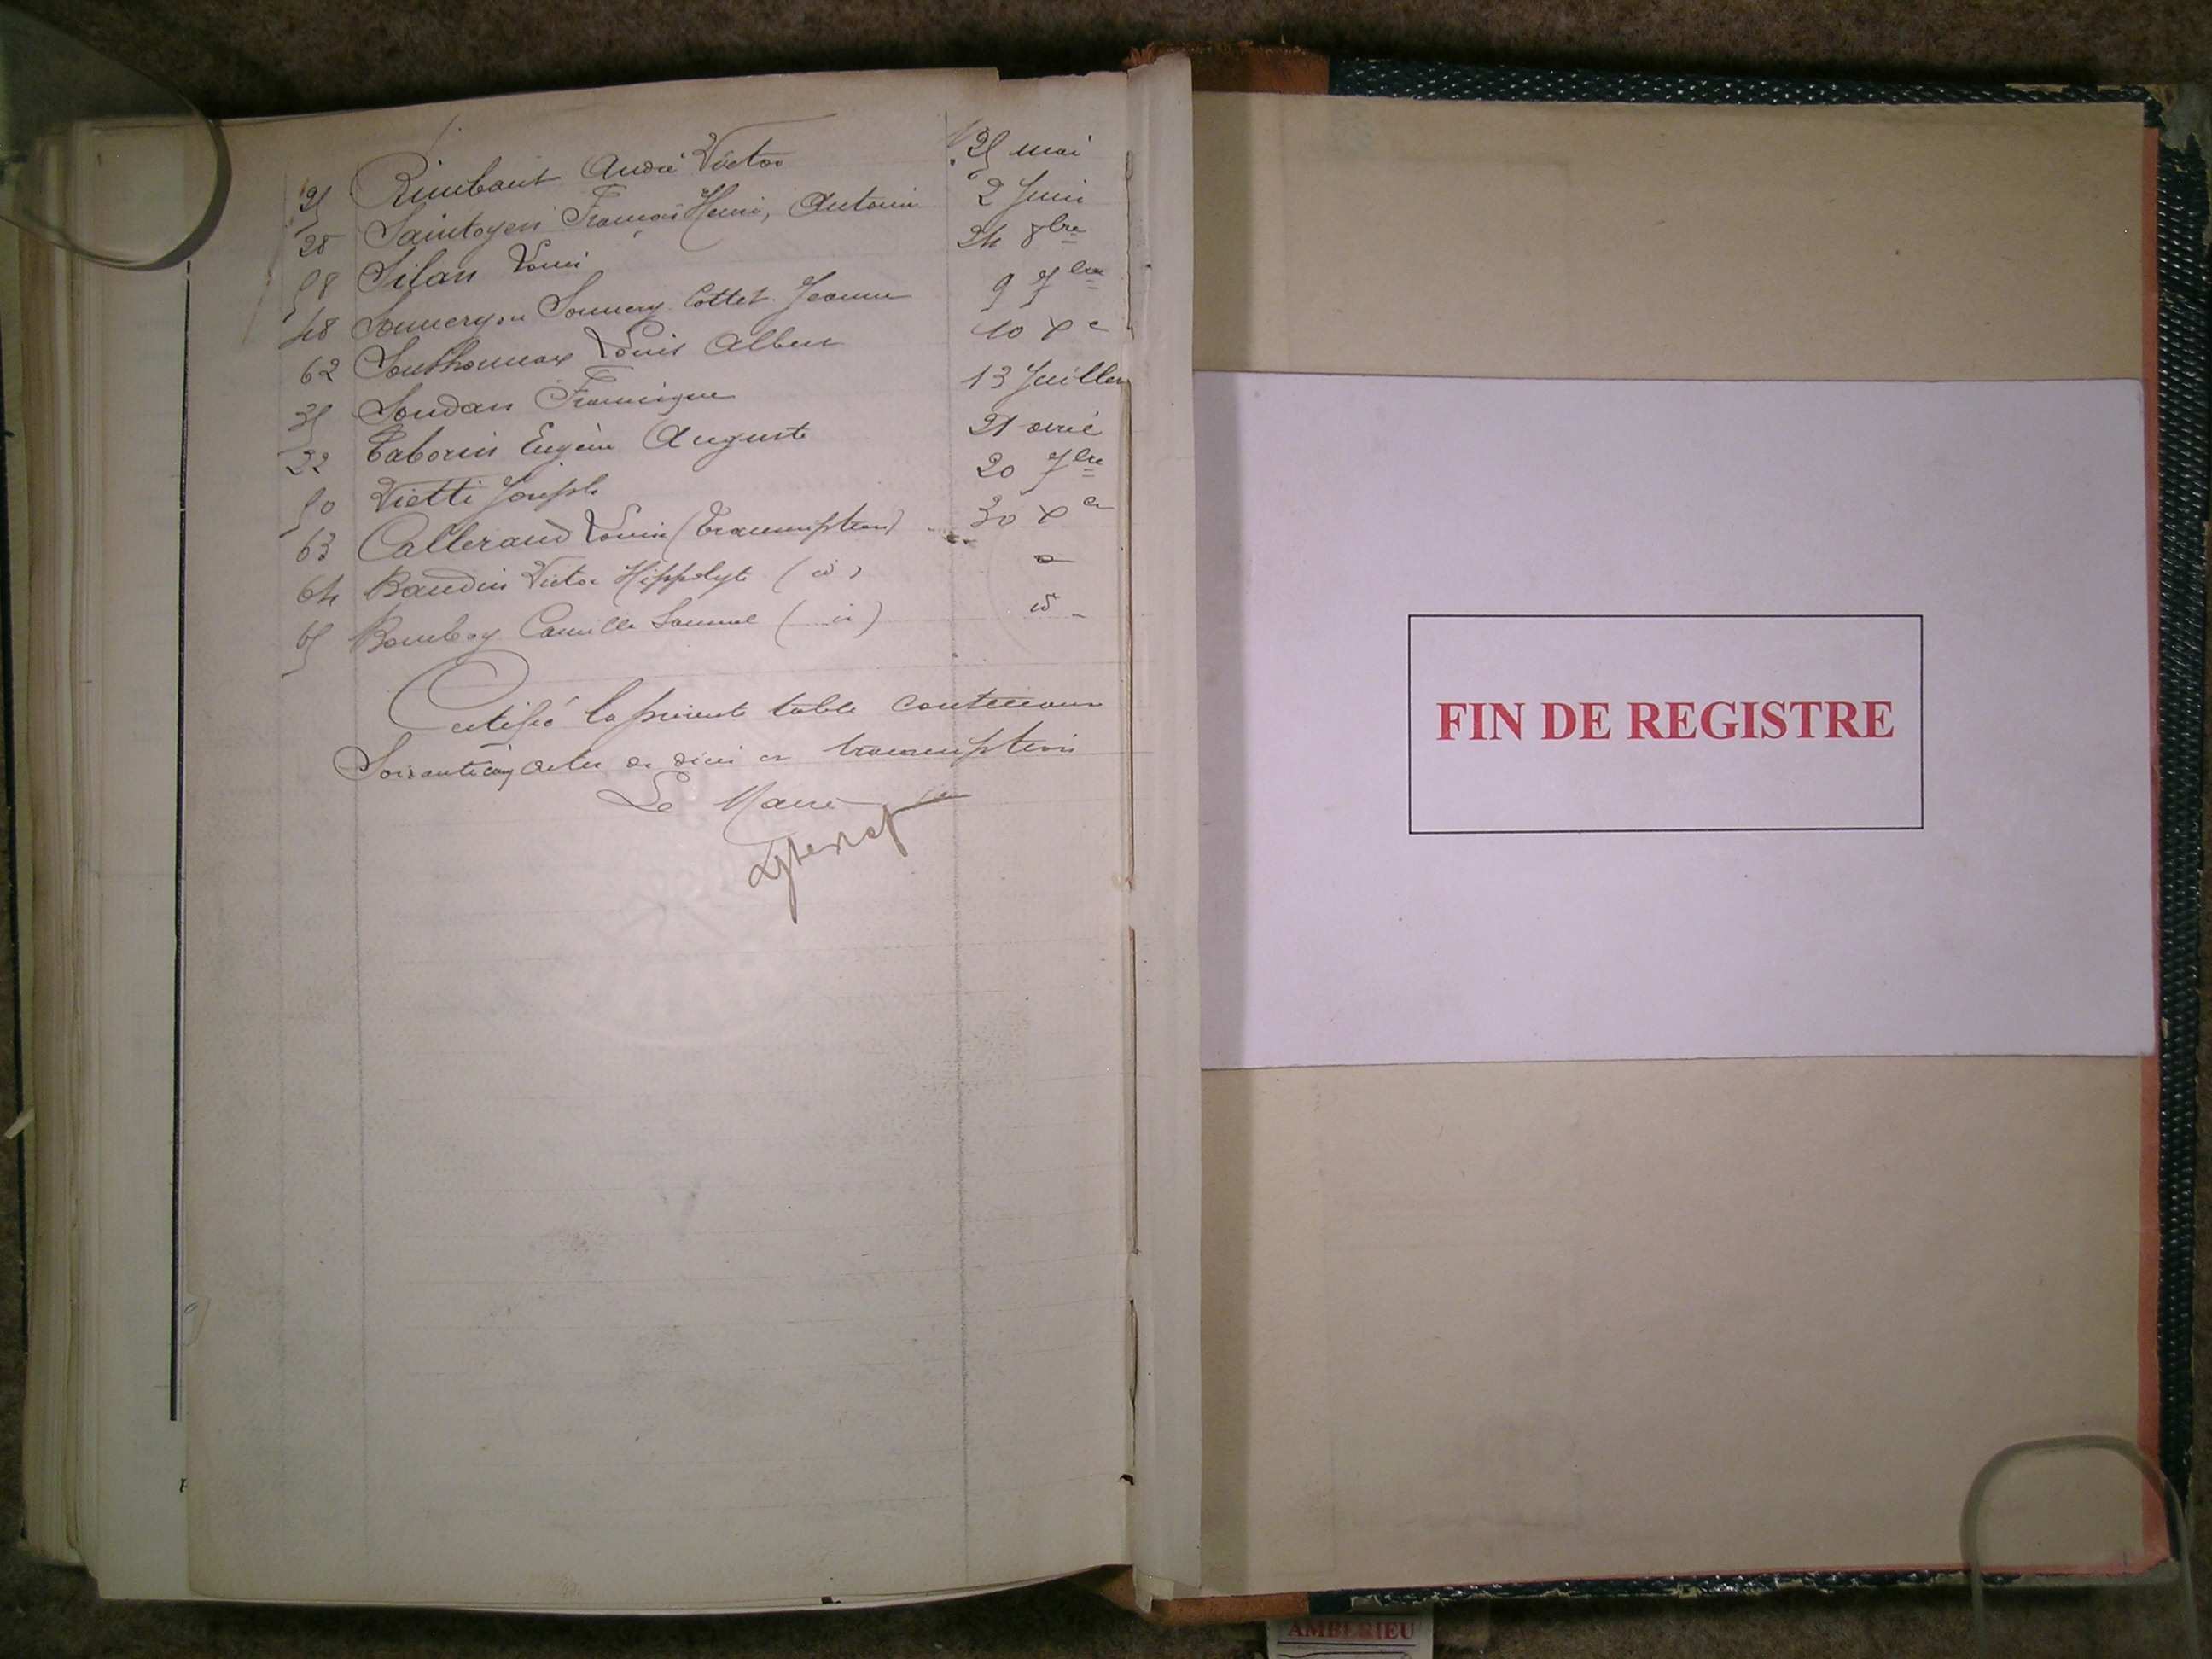 25 Rimbaut André Victor 25 mai
28 Saintoyen François Henri, Antonin 2 Juin
58 Silan Louis 24 8bre
48 Sonnery ou Sonnery Cottet Jeanne 9 7bre
62 Sonthonnax Louis Albert 10 Xe
35 Soudan Francisque 13 Juillet
22 Taborin Eugène Auguste 21 avril
50 Vietti Joseph 20 7bre
63 Calleraud Louis (Transcription) 30 Xe
64 Baudin Victor Hippolyte (id)
65 Bomboy Camille (id) id
Certifié la présente table contenant
Soixante cinq actes de décès et transcription
Le Maire
FIN DE REGISTRE
AMBERIEU